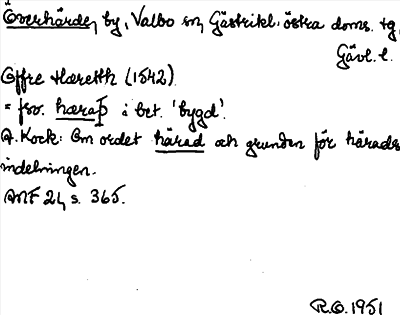 Överhärde, by, Valbo sn, Gästrikl. östra doms. tg,
Gävl. l.
Offre Hæretth (1542)
= fsv. hæraþ i bet. 'bygd'.
A. Kock: Om ordet härad och grunden för härads-
indelningen.
ANF 21, s. 365.
R.O. 1951